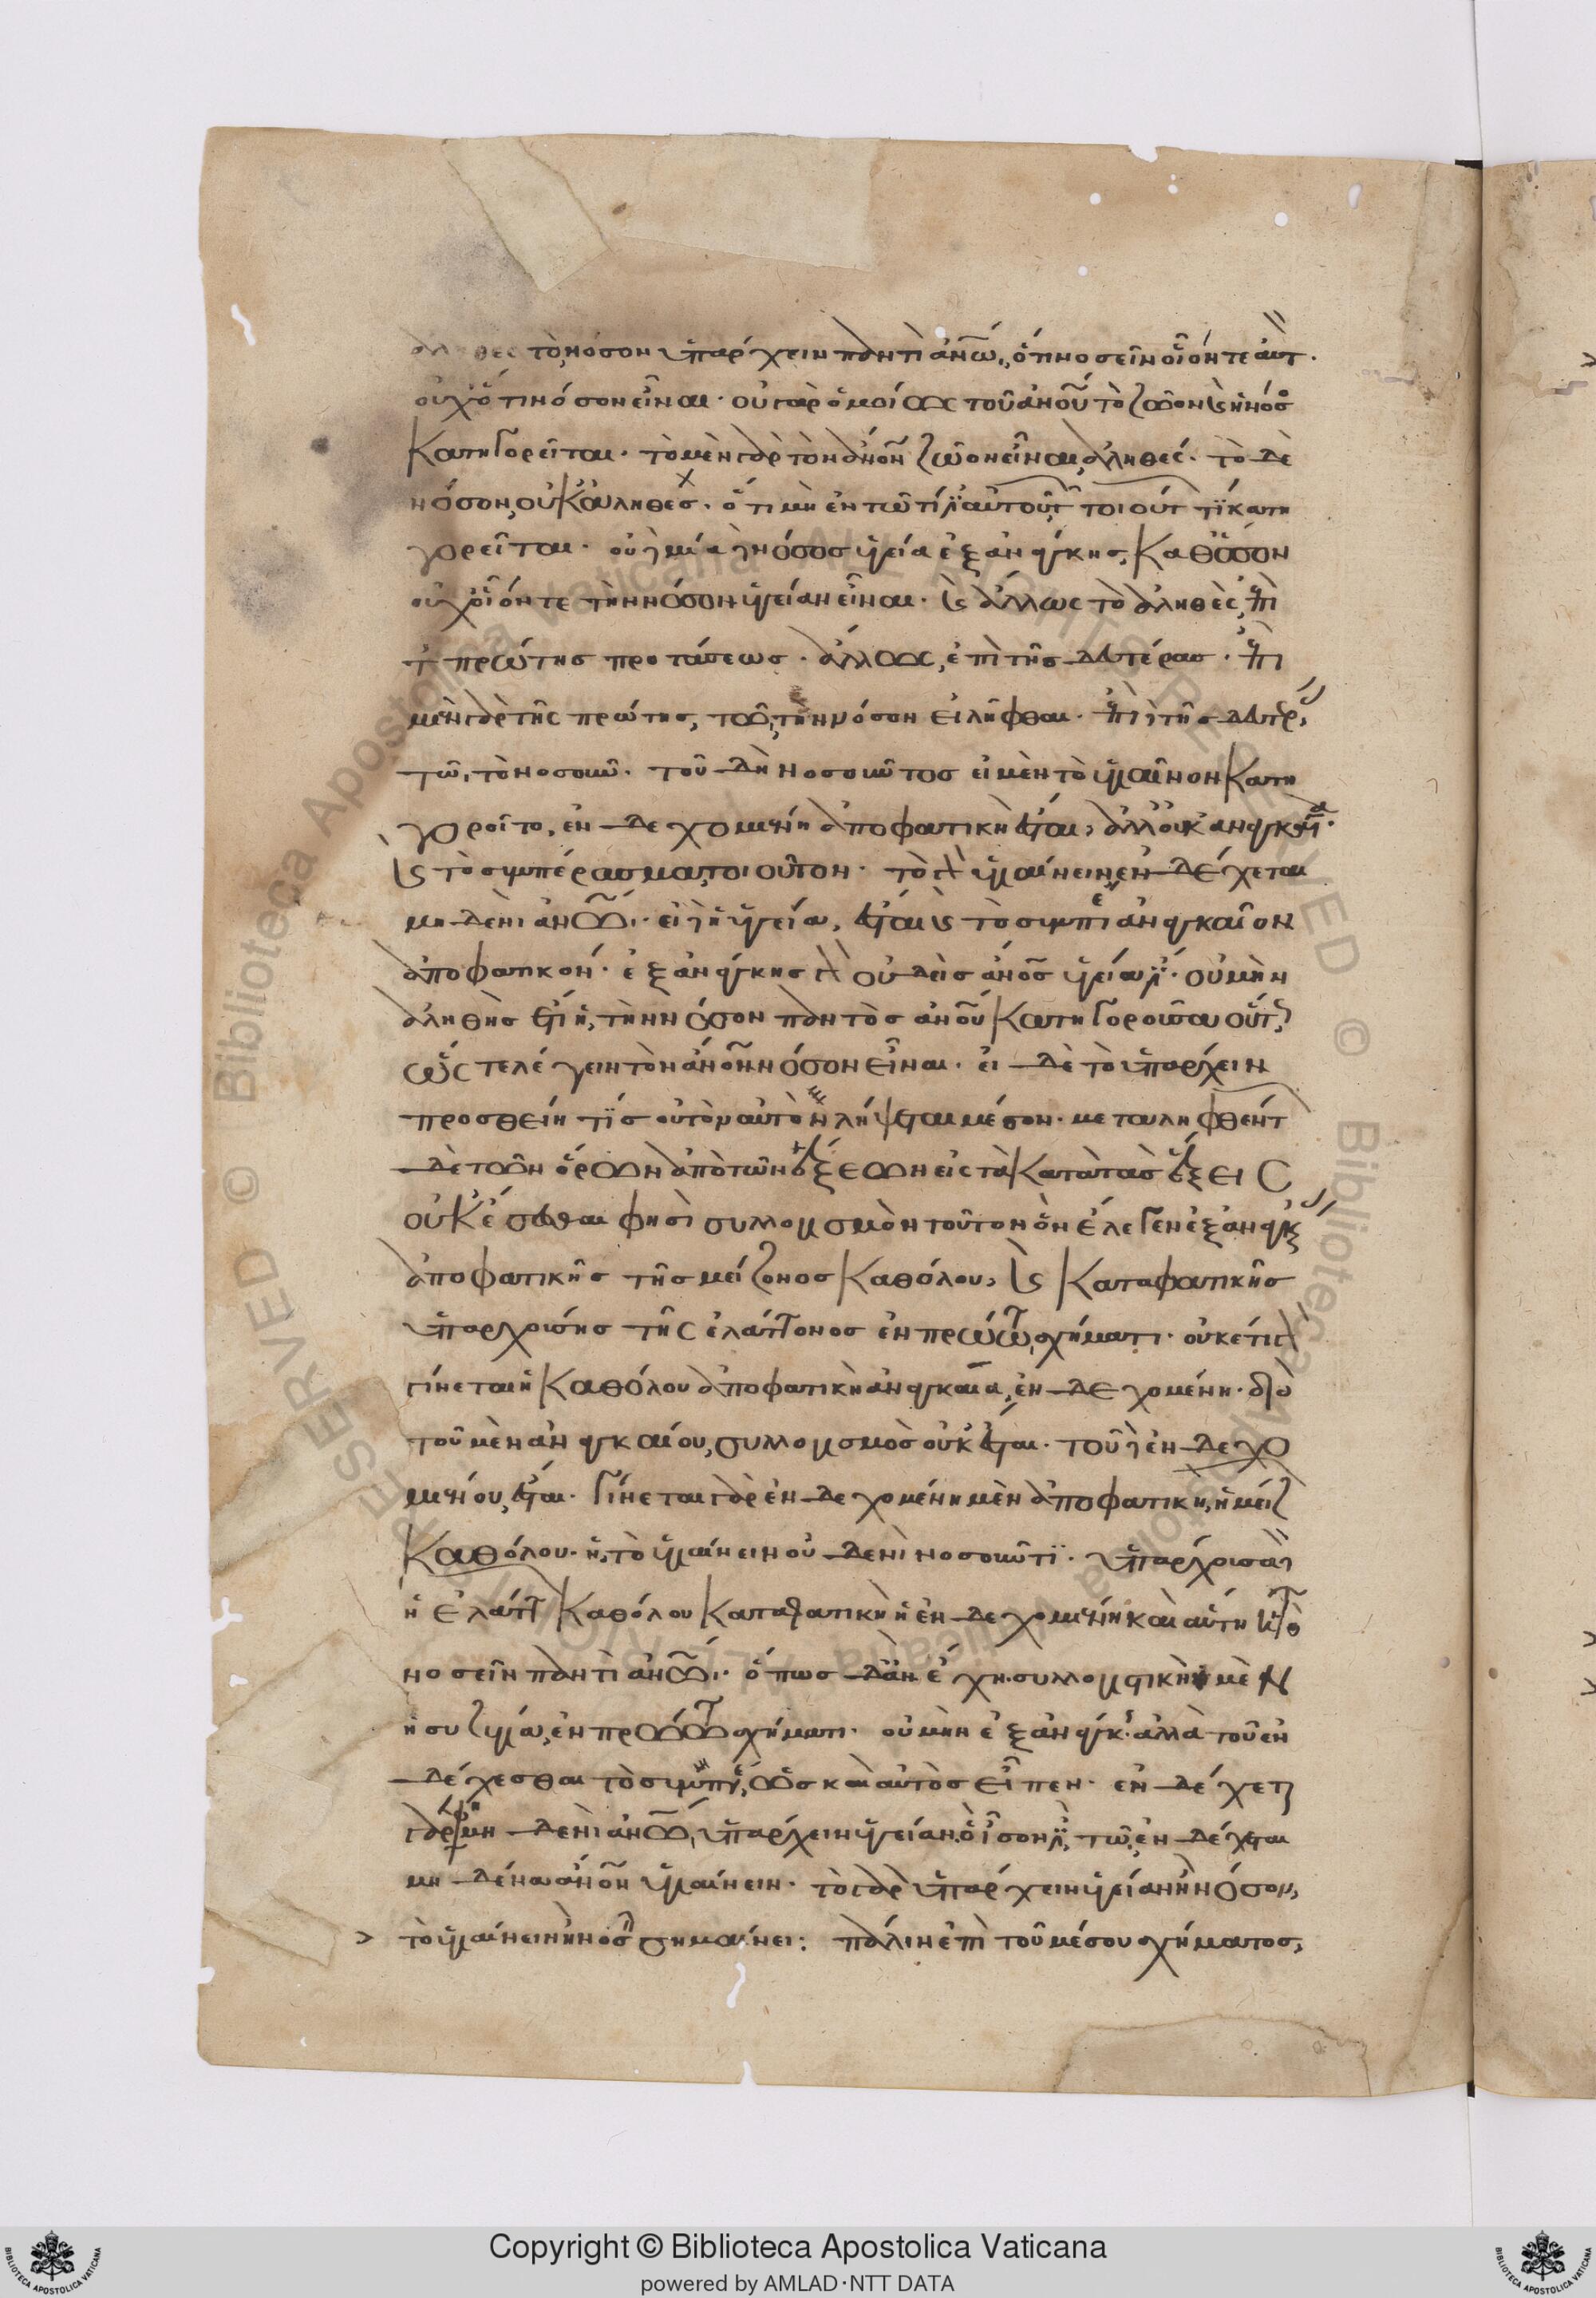 τὸ νόσον ὑπάρχειν παντὶ ἀνω, ὅτι νοσεῖν οἷόν τε αὐτ.
οὐχ ὅτι νόσον εἶναι. οὐ γὰρ ὁμοίως τοῦ ἀνου τὸ ζῶον καὶ ἡ νόσος
κατηγορεῖται. τὸ μὲν γὰρ τὸν ἀνον ζῶον εἶναι, ἀληθές. τὸ δὲ
νόσον, οὐκ ἀληθές. ὅτι μὴ ἐν τῶ τί ἐστι αὐτοῦ τοιοῦτ τι κατη
γορεῖται. οὐ δὲ μία δὲ νόσος ὑγεία ἐξ ἀνάγκης, καθόσον
οὐχ οἷόν τε τὴν νόσον ὑγείαν εἶναι. καὶ ἄλλως τὸ ἀληθὲς, ἐπὶ
τῆς πρώτης προτάσεως. ἄλλως, ἐπὶ τῆς δευτέρας. ἐπὶ
μὲν γὰρ τῆς πρώτης, τῶ, τὴν νόσον εἰλῆφθαι. ἐπὶ δὲ τῆς δευτέρ,
τῶ, τὸ νοσοῦν. τοῦ δὴ νοσοῦντος εἰ μὲν τὸ ὑγιαῖνον κατη
γοροῖτο, ἐνδεχομένη ἀποφατικὴ ἔσται, ἀλλ' οὐκ ἀναγκαία.
καὶ τὸ συμπέρασμα, τοιοῦτον. τὸ γὰρ ὑγιαίνειν, ἐνδέχεται
μηδενὶ ἀνω. εἰ δὲ ἡ ὑγεία, ἔσται καὶ τὸ συμπε ἀναγκαῖον
ἀποφατικόν. ἐξ ἀνάγκης γὰρ οὐδεὶς ἀνος ὑγεία ἐστι. οὐ μὴν
ἀληθὴς ἔτι ἡ, τὴν νόσον παντὸς ἀνου κατηγοροῦσα οὕτ,
ὥστε λέγειν τὸν ἀνον νόσον εἶναι. εἰ δὲ τὸ ὑπάρχειν
προσθείη τίς οὐ τὸν αὐτὸν λήψεται μέσον. μεταληφθέντ
δὲ τῶν ὅρων ἀπὸ τῶν ἕξεων εἰς τὰ κατὰ τὰς ἕξεις
οὐκ ἔσεσθαι φησὶ συλλογισμὸν τοῦτον ὃν ἔλεγεν ἐξ ἀνάγκ
ἀποφατικῆς τῆς μείζονος καθόλου, καὶ καταφατικῆς
ὑπαρχούσης τῆς ἐλάττονος ἐν πρώτω σχήματι. οὐκέτι γὰρ
γίνεται ἡ καθόλου ἀποφατικὴ ἀναγκαία, ἐνδεχομένη. διὸ
τοῦ μὲν ἀναγκαίου, συλλογισμὸς οὐκ ἔσται. τοῦ δὲ ἐνδεχο
μένου, ἔσται. γίνεται γὰρ ἐνδεχομένη μὲν ἀποφατικὴ, ἡ μείζ
καθόλου. ἡ, τὸ ὑγιαίνειν οὐδενὶ νοσοῦντι. ὑπάρχουσα δὲ
ἡ ἐλάττ καθόλου καταφατικὴ ἢ ἐνδεχομένη καὶ αὕτη κατὰ τὸ
νοσεῖν παντὶ ἀνω. ὅπως δ' ἂν ἔχη. συλλογιστικὴ μὲν
ἡ συζυγία, ἐν πρώτω σχήματι. οὐ μὴν ἐξ ἀνάγκ. ἀλλὰ τοῦ ἐν
δέχεσθαι τὸ συμπέ, ὡς καὶ αὐτὸς εἶπεν. ἐνδέχετ
γὰρ φη μηδενὶ ἀνω, ὑπάρχειν ὑγείαν. ὃ ἴσον ἐστὶ, τῶ, ἐνδέχεται
μηδένα ἀνον ὑγιαίνειν. τὸ γὰρ ὑπάρχειν ὑγείαν ἢ νόσον,
τὸ ὑγιαίνειν ἢ νοσεῖν σημαίνει: πάλιν ἐπὶ τοῦ μέσου σχήματος,
Copyright © Biblioteca Apostolica Vaticana
powered by AMLAD·NTT DATA